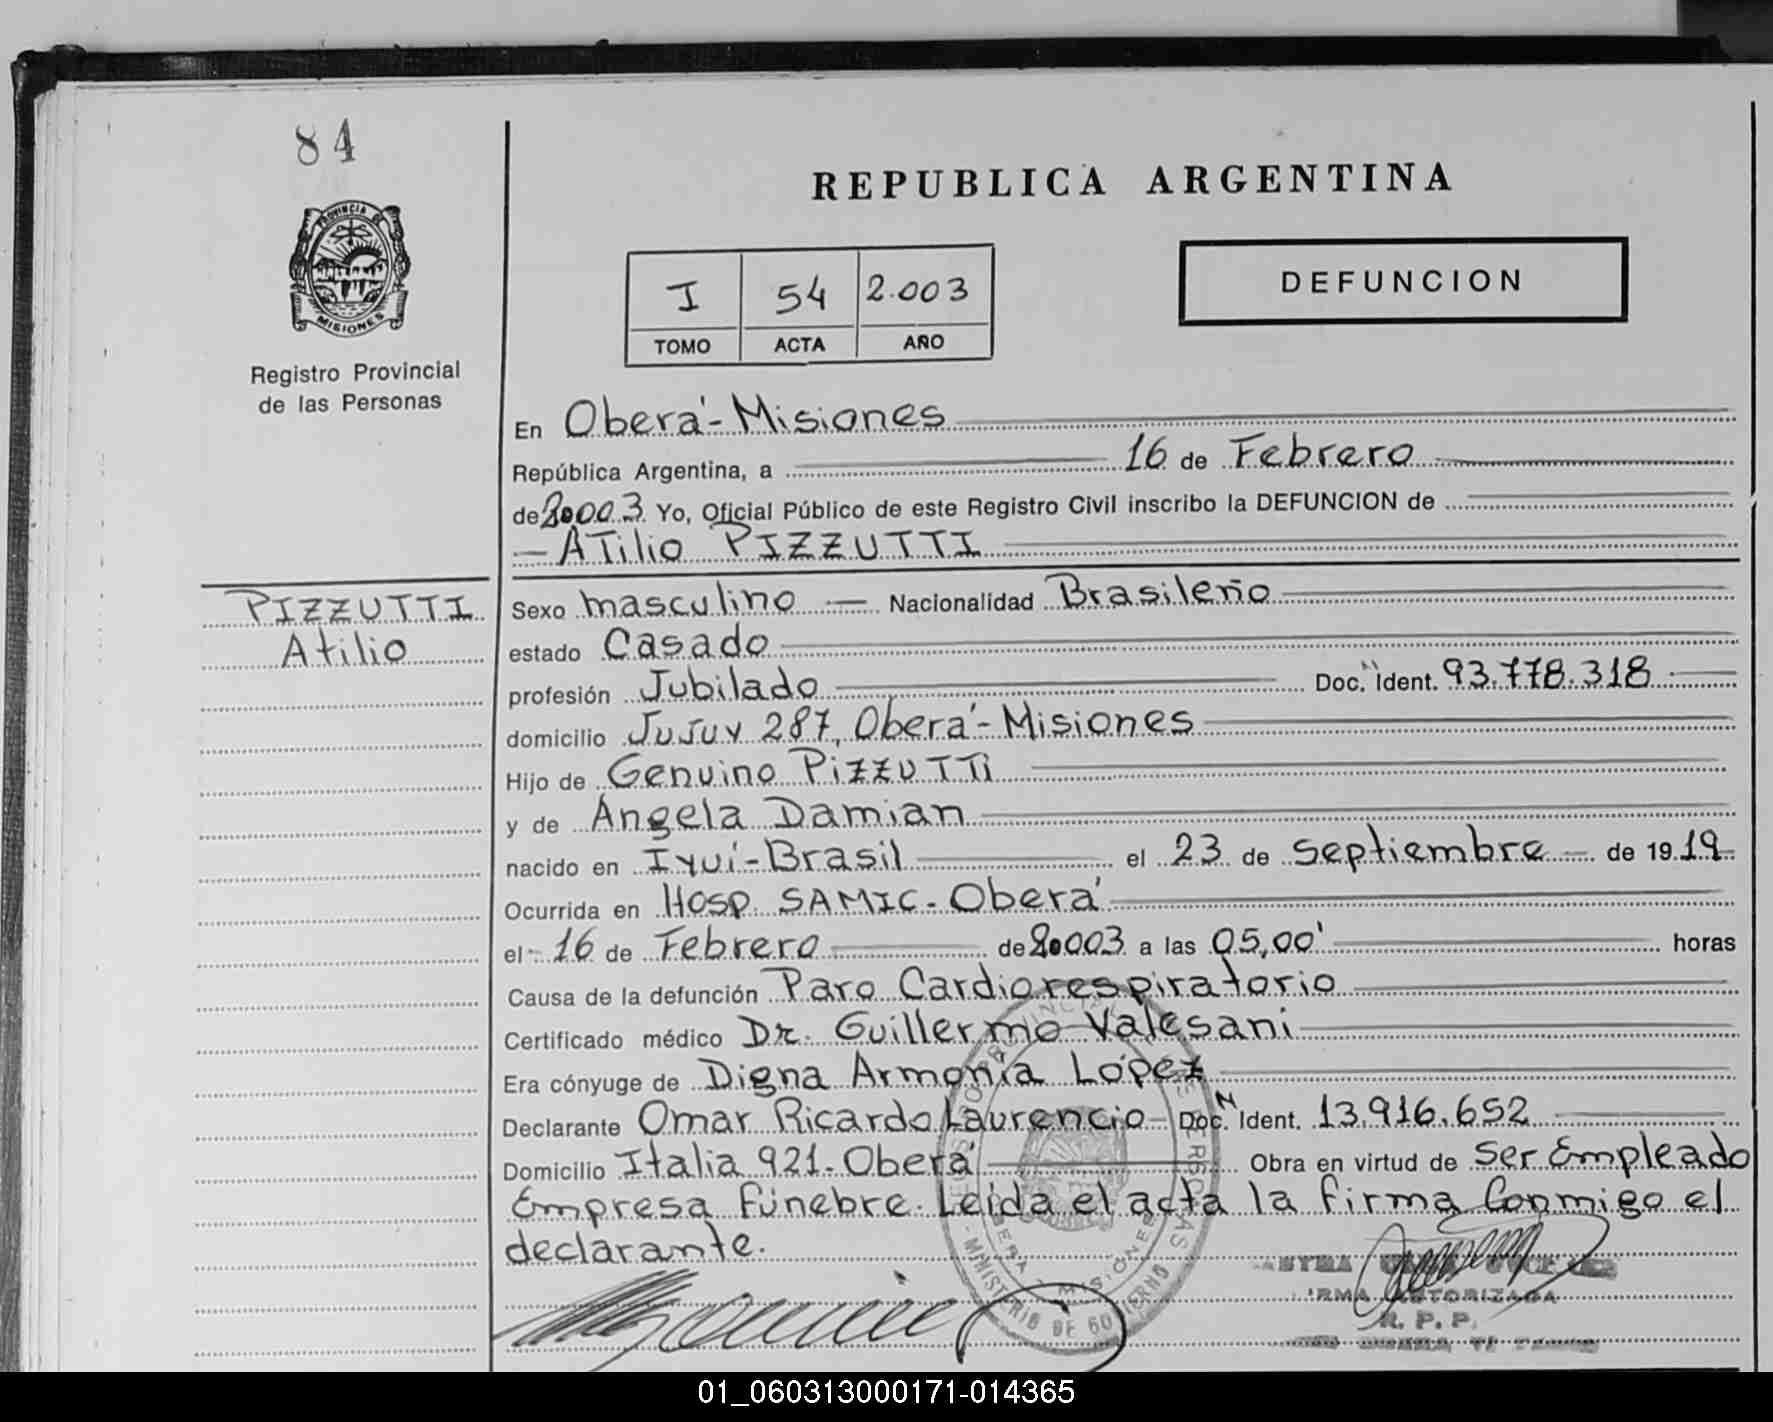 84
REPUBLICA ARGENTINA
PROVINCIA DE
MISIONES
Registro Provincial
de las Personas
I 54 2.003
TOMO ACTA AÑO
DEFUNCION
En Oberá-Misiones
República Argentina, a 16 de Febrero
de 2.003 Yo, Oficial Público de este Registro Civil inscribo la DEFUNCION de
Atilio PIZZUTTI
PIZZUTTI
Atilio
Sexo masculino Nacionalidad Brasileño
estado Casado
profesión Jubilado Doc. Ident. 93.778.318
domicilio Jujuy 287, Oberá-Misiones
Hijo de Genuino Pizzutti
y de Angela Damian
nacido en Iyuí-Brasil el 23 de Septiembre de 1919
Ocurrida en Hosp. SAMIC-Oberá
el 16 de Febrero de 2003 a las 05,00' horas
Causa de la defunción Paro Cardiorespiratorio
Certificado médico Dr. Guillermo Valesani
Era cónyuge de Digna Armonía López
Declarante Omar Ricardo Laurencio Doc. N Ident. 13.916.652
Domicilio Italia 921-Oberá Obra en virtud de Ser Empleado
Empresa Fúnebre. Leída el acta la firma Conmigo el
declarante.
MINISTERIO DE GOBIERNO
R. P. P.
01_060313000171-014365